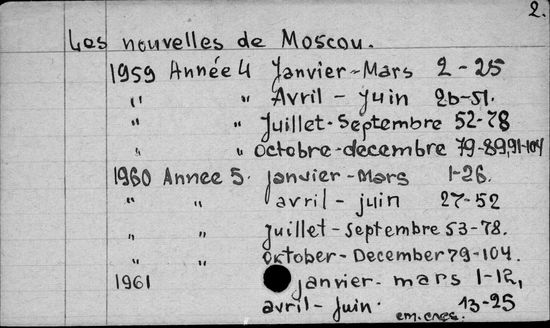 2.
Les nouvelles de Moscou.
1959 Année 4 Janvier-Mars 2-25
" " Avril - Juin 26-51.
" " Juillet-Septembre 52-78
" " octobre-décembre 79-89,91-104
1960 Annee 5. janvier-Mars 1-26.
" " avril - juin 27-52
" " juillet-septembre 53-78.
" " october-December 79-104.
1961 janvier-mars 1-12,
avril-juin. 13-25